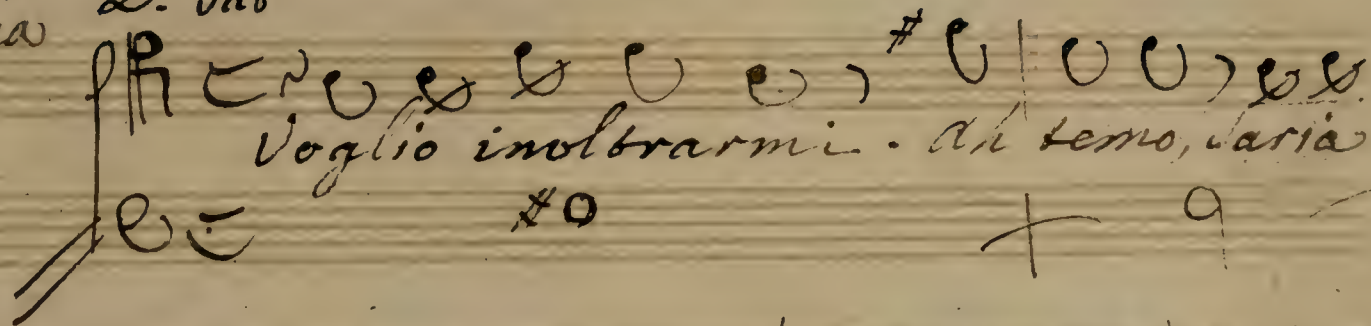 Voglio inoltrarmi. Ah temo, saria